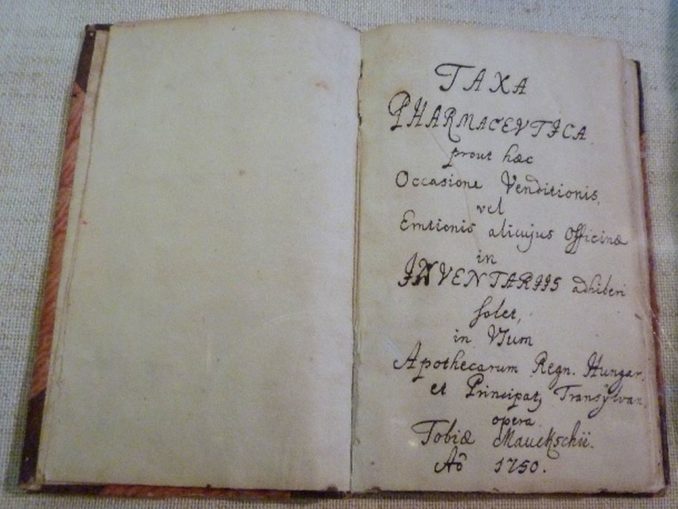 TAXA
PHARMACEVTICA
prout hæc
Occasione Venditionis,
vel
Emtionis alicujus Officinæ
in
INVENTARIIS adhiberi
solet,
in Usum
Apothecarum Regn. Hungar.
et Principatq Transylvan.
opera
Tobiæ Mauckschii.
Aō 1750.